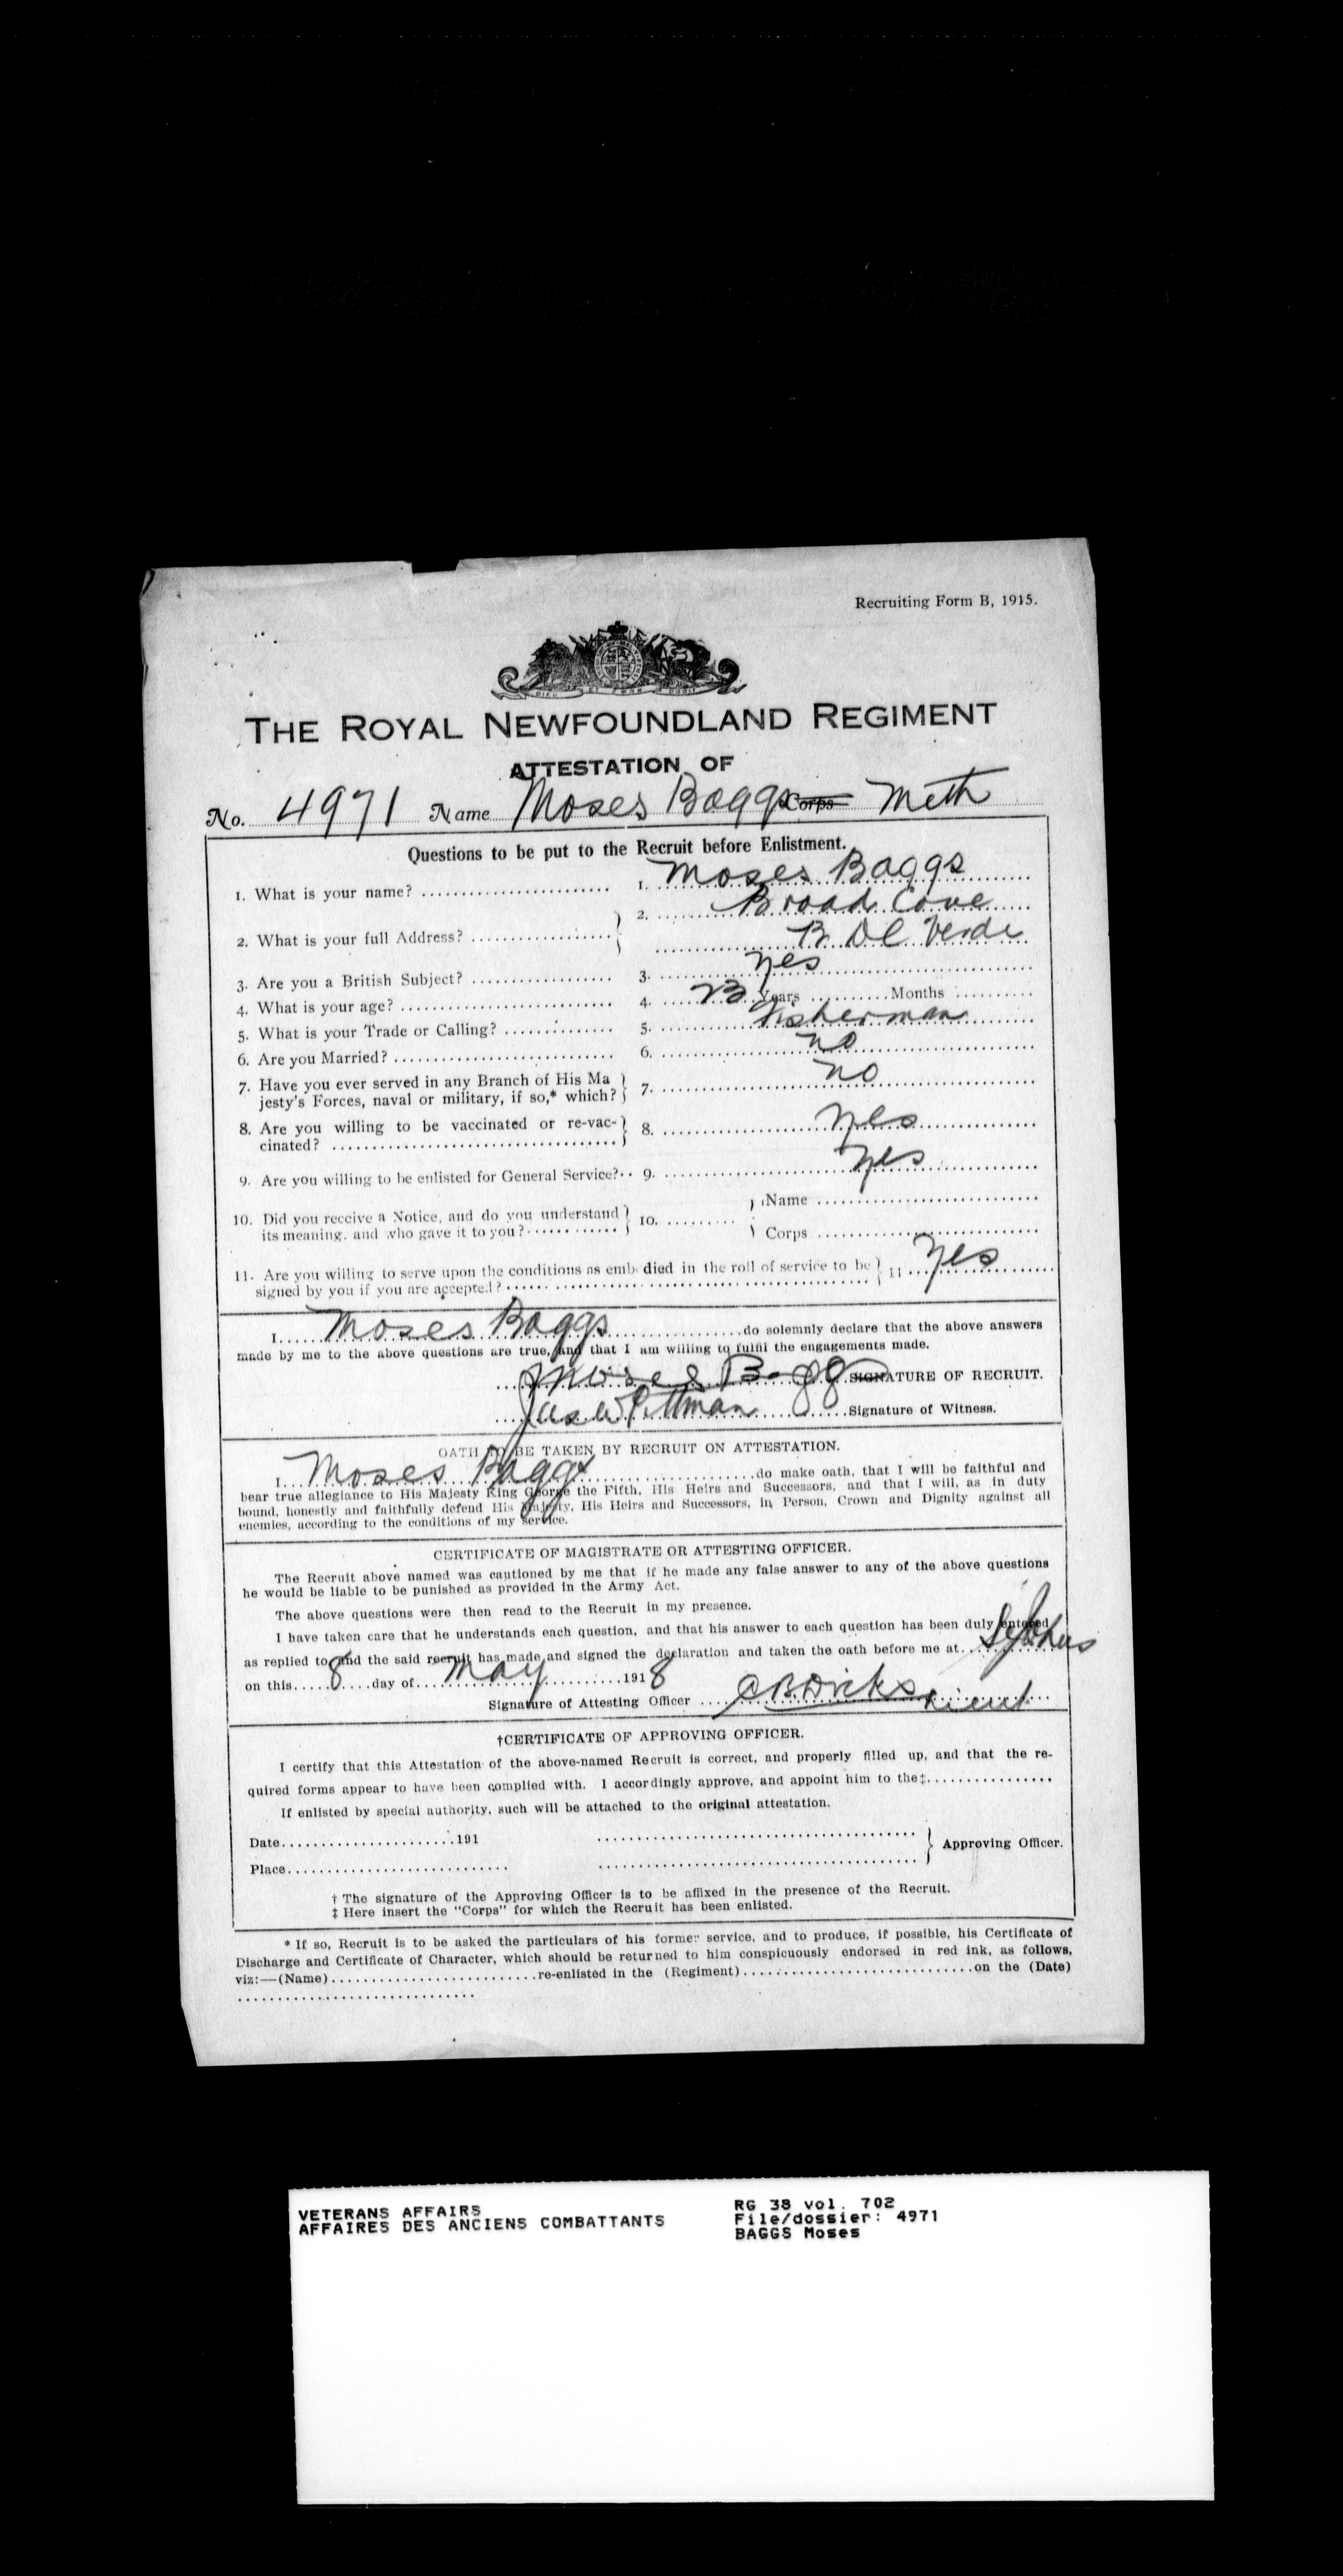 Recruiting Form B, 1915.
DIEU ET MON DROIT
THE ROYAL NEWFOUNDLAND REGIMENT
ATTESTATION OF
No. 4971 Name Moses Baggs Corps Meth
Questions to be put to the Recruit before Enlistment.
1. What is your name? 1. Moses Baggs
2. What is your full Address? 2. Broad Cove
B De Verde
3. Are you a British Subject? 3. Yes
4. What is your age? 4. 23 Years Months
5. What is your Trade or Calling? 5. Fisherman
6. Are you Married? 6. no
7. Have you ever served in any Branch of His Ma
jesty's Forces, naval or military, if so,* which? 7. no
8. Are you willing to be vaccinated or re-vac-
cinated? 8. Yes
9. Are you willing to be enlisted for General Service? 9. Yes
10. Did you receive a Notice, and do you understand
its meaning, and who gave it to you? 10. Name
Corps
11. Are you willing to serve upon the conditions as embodied in the roll of service to be
signed by you if you are accepted? 11 Yes
I Moses Baggs do solemnly declare that the above answers
made by me to the above questions are true, and that I am willing to fulfil the engagements made.
Moses Baggs SIGNATURE OF RECRUIT.
Jas W Pittman Signature of Witness.
OATH TO BE TAKEN BY RECRUIT ON ATTESTATION.
I Moses Baggs do make oath, that I will be faithful and
bear true allegiance to His Majesty King George the Fifth, His Heirs and Successors, and that I will, as in duty
bound, honestly and faithfully defend His Majesty, His Heirs and Successors, in Person, Crown and Dignity against all
enemies, according to the conditions of my service.
CERTIFICATE OF MAGISTRATE OR ATTESTING OFFICER.
The Recruit above named was cautioned by me that if he made any false answer to any of the above questions
he would be liable to be punished as provided in the Army Act.
The above questions were then read to the Recruit in my presence.
I have taken care that he understands each question, and that his answer to each question has been duly entered
as replied to, and the said recruit has made and signed the declaration and taken the oath before me at St Johns
on this 8 day of May 1918
Signature of Attesting Officer C B Dicks Lieut
†CERTIFICATE OF APPROVING OFFICER.
I certify that this Attestation of the above-named Recruit is correct, and properly filled up, and that the re-
quired forms appear to have been complied with. I accordingly approve, and appoint him to the‡
If enlisted by special authority, such will be attached to the original attestation.
Date 191
Approving Officer.
Place
† The signature of the Approving Officer is to be affixed in the presence of the Recruit.
‡ Here insert the "Corps" for which the Recruit has been enlisted.
* If so, Recruit is to be asked the particulars of his former service, and to produce, if possible, his Certificate of
Discharge and Certificate of Character, which should be returned to him conspicuously endorsed in red ink, as follows,
viz:—(Name) re-enlisted in the (Regiment) on the (Date)
VETERANS AFFAIRS
AFFAIRES DES ANCIENS COMBATTANTS
RG 38 vol. 702
File/dossier: 4971
BAGGS Moses